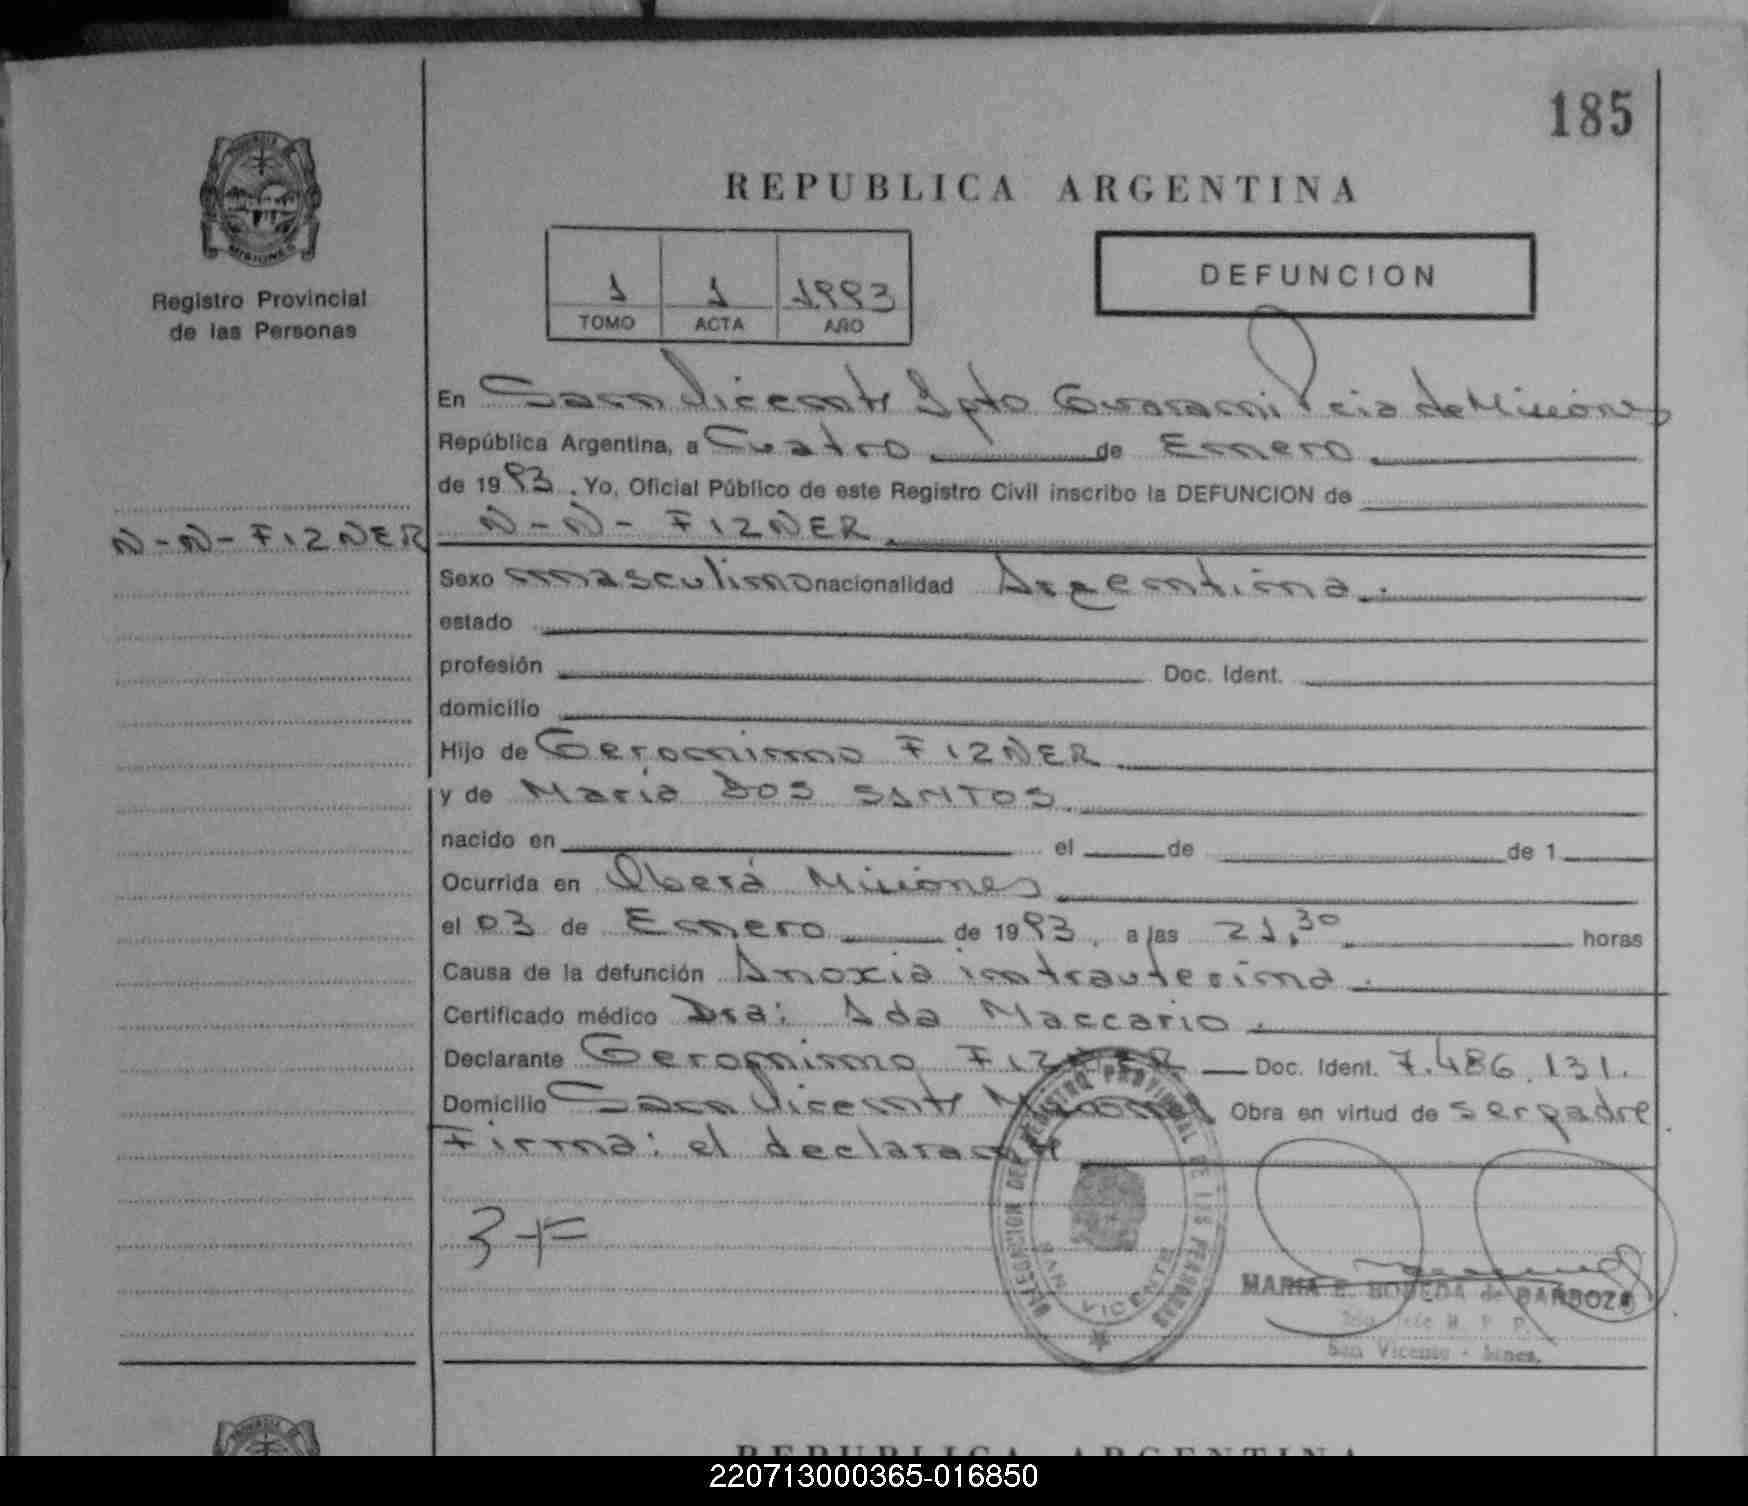 185
REPUBLICA ARGENTINA
MISIONES
Registro Provincial
de las Personas
1 1 1993
TOMO ACTA AÑO
DEFUNCION
En San Vicente Dpto Guarani Pcia de Misiones
República Argentina, a Cuatro de Enero
de 1993. Yo, Oficial Público de este Registro Civil inscribo la DEFUNCION de
N-N-FIZNER
N-N-FIZNER
Sexo masculino nacionalidad Argentina.
estado
profesión Doc. Ident.
domicilio
Hijo de Geronimo FIZNER
y de Maria DOS SANTOS
nacido en el de de 1
Ocurrida en Oberá Misiones
el 03 de Enero de 1993, a las 21,30 horas
Causa de la defunción Anoxia intrauterina.
Certificado médico Dra: Ada Maccario.
Declarante Geronimo FIZNER Doc. Ident. 7.486.131.
Domicilio San Vicente Misiones Obra en virtud de ser padre
Firma: el declarante
DELEGACION DEL REGISTRO PROVINCIAL DE LAS PERSONAS
SAN VICENTE
MARIA E. de BARBOZA
San Vicente - Mnes.
REPUBLICA ARGENTINA
220713000365-016850